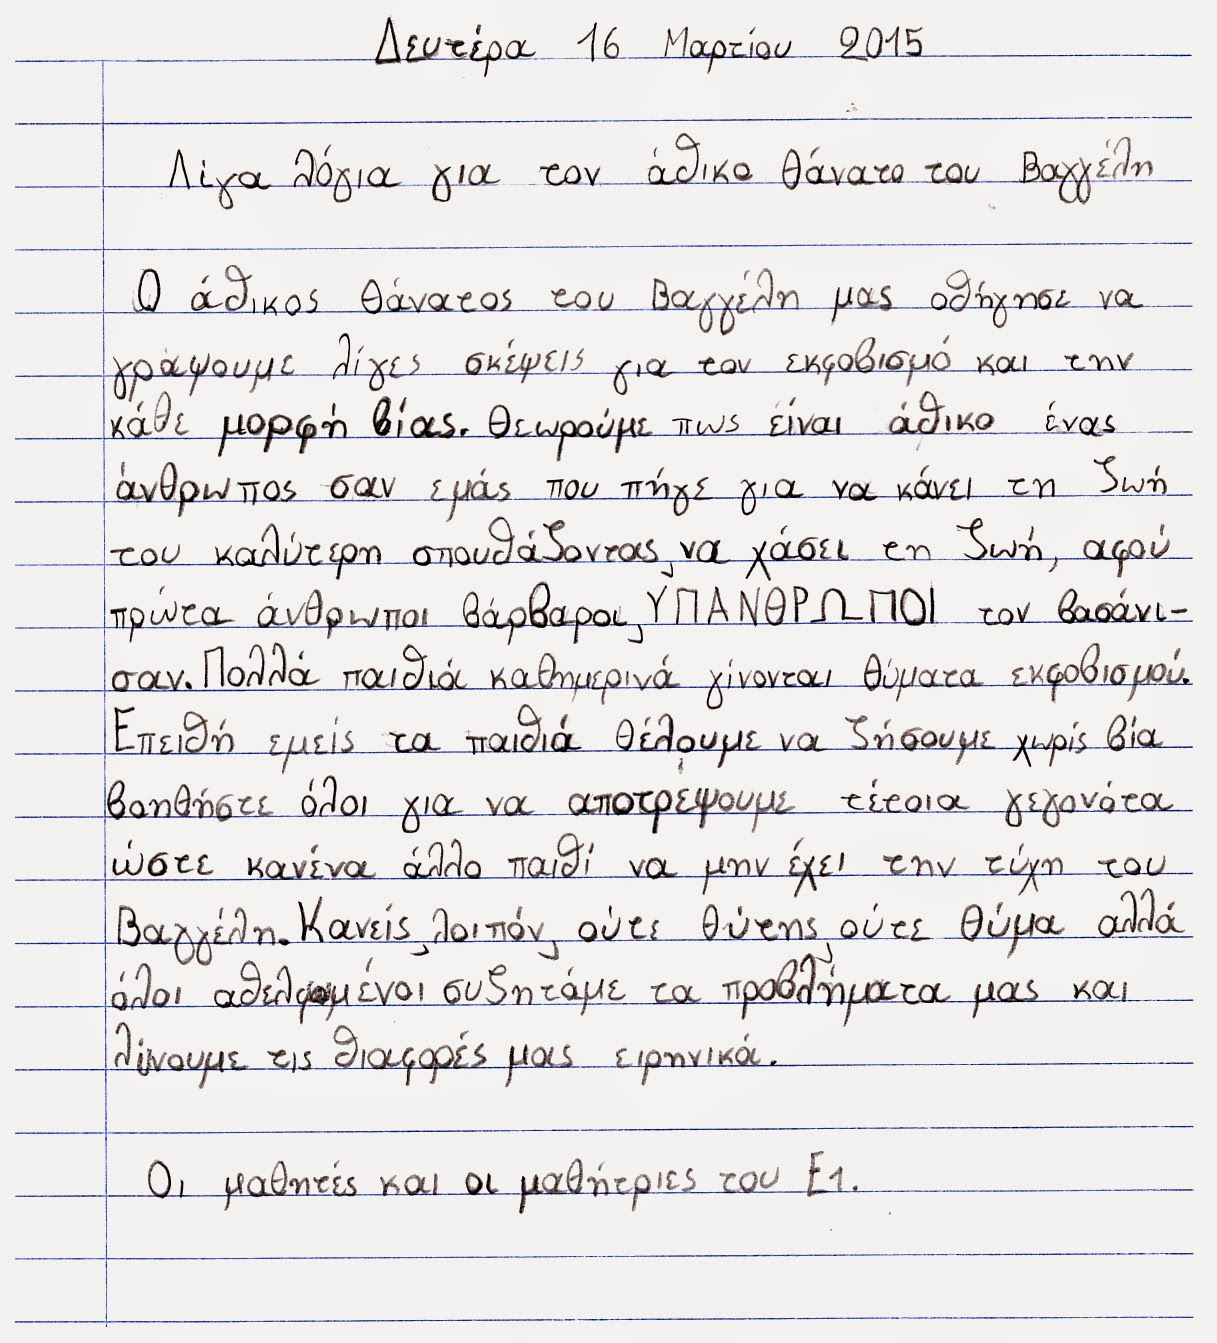 Δευτέρα 16 Μαρτίου 2015
Λίγα λόγια για τον άδικο θάνατο του Βαγγέλη
Ο άδικος θάνατος του Βαγγέλη μας οδήγησε να
γράψουμε λίγες σκέψεις για τον εκφοβισμό και την
κάθε μορφή βίας. Θεωρούμε πως είναι άδικο ένας
άνθρωπος σαν εμάς που πήγε για να κάνει τη ζωή
του καλύτερη σπουδάζοντας, να χάσει τη ζωή, αφού
πρώτα άνθρωποι βάρβαροι, ΥΠΑΝΘΡΩΠΟΙ τον βασάνι-
σαν. Πολλά παιδιά καθημερινά γίνονται θύματα εκφοβισμού.
Επειδή εμείς τα παιδιά θέλουμε να ζήσουμε χωρίς βία
βοηθήστε όλοι για να αποτρέψουμε τέτοια γεγονότα
ώστε κανένα άλλο παιδί να μην έχει την τύχη του
Βαγγέλη. Κανείς, λοιπόν, ούτε θύτης, ούτε θύμα αλλά
όλοι αδελφωμένοι συζητάμε τα προβλήματα μας και
λύνουμε τις διαφορές μας ειρηνικά.
Οι μαθητές και οι μαθήτριες του Ε1.